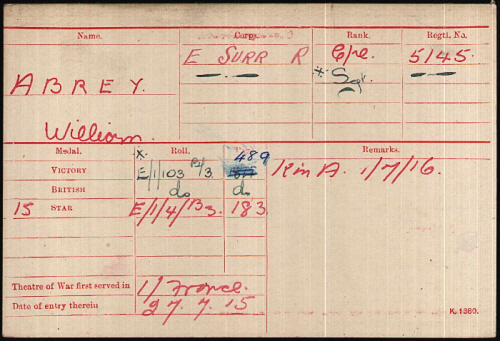 Name. Corps. Rank. Regtl. No.
E SURR R Cpl. 5145.
ABREY. — . — * Sgt. — —
William.
Medal. Roll. Remarks.
VICTORY E/1/103 B/3 489 K in A. 1/7/16.
BRITISH do do
15 STAR E/1/4/B3. 183.
Theatre of War first served in 1/ France.
Date of entry therein 27.7.15
K. 1380.